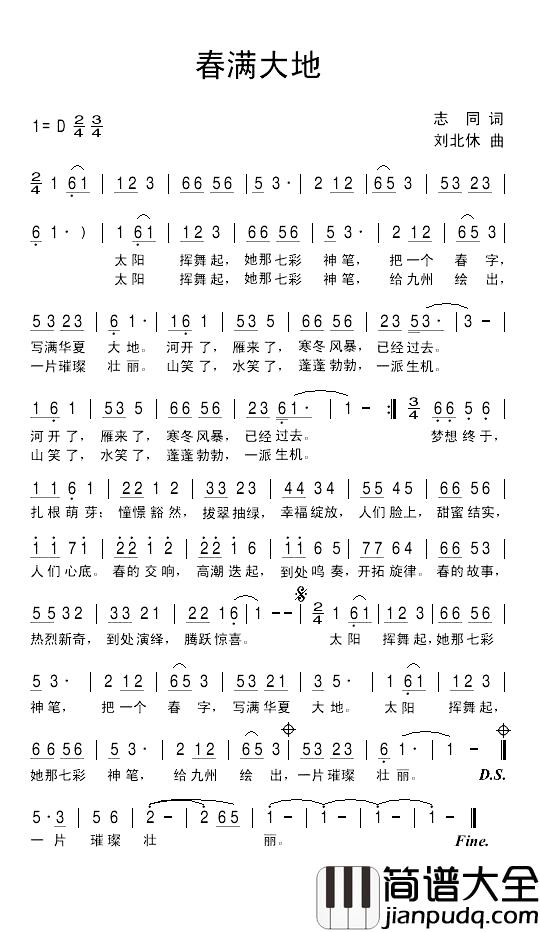 春满大地
1= D 2/4 3/4
志 同 词
刘北休 曲
2/4 1 61 | 12 3 | 66 56 | 5 3· | 2 12 | 65 3 | 53 23 |
6 1· ) | 1 61 | 12 3 | 66 56 | 5 3· | 2 12 | 65 3 |
太阳 挥舞起, 她那七彩 神笔, 把一个 春字,
太阳 挥舞起, 她那七彩 神笔, 给九州 绘出,
53 23 | 6 1· | 16 1 | 53 5 | 66 56 | 23 53· | 3 – |
写满华夏 大地。 河开了, 雁来了, 寒冬风暴, 已经过去。
一片璀璨 壮丽。 山笑了, 水笑了, 蓬蓬勃勃, 一派生机。
16 1 | 53 5 | 66 56 | 23 61· | 1 – :‖ 3/4 66 5 6 |
河开了, 雁来了, 寒冬风暴, 已经过去。 梦想终于,
山笑了, 水笑了, 蓬蓬勃勃, 一派生机。
11 6 1 | 22 1 2 | 33 23 | 44 34 | 55 45 | 66 56 |
扎根萌芽; 憧憬豁然, 拔翠抽绿, 幸福绽放, 人们脸上, 甜蜜结实,
11 71 | 22 12 | 11 65 | 77 64 | 66 53 |
人们心底。 春的交响, 高潮迭起, 到处鸣奏, 开拓旋律。 春的故事,
55 32 | 33 21 | 22 16 | 1 – – | 2/4 1 61 | 12 3 | 66 56 |
热烈新奇, 到处演绎, 腾跃惊喜。 太阳 挥舞起, 她那七彩
5 3· | 2 12 | 65 3 | 53 21 | 3 5· | 1 61 | 12 3 |
神笔, 把一个 春字, 写满华夏 大地。 太阳 挥舞起,
66 56 | 5 3· | 2 12 | 66 53 | 53 23 | 6 1· | 1 – ‖
她那七彩 神笔, 给九州 绘出, 一片璀璨 壮丽。 D.S.
5· 3 | 5 6 | 2 – | 2 65 | 1 – | 1 – | 1 – | 1 – ‖
一片 璀璨 壮 丽。 Fine.
简谱大全
jianpudq.com